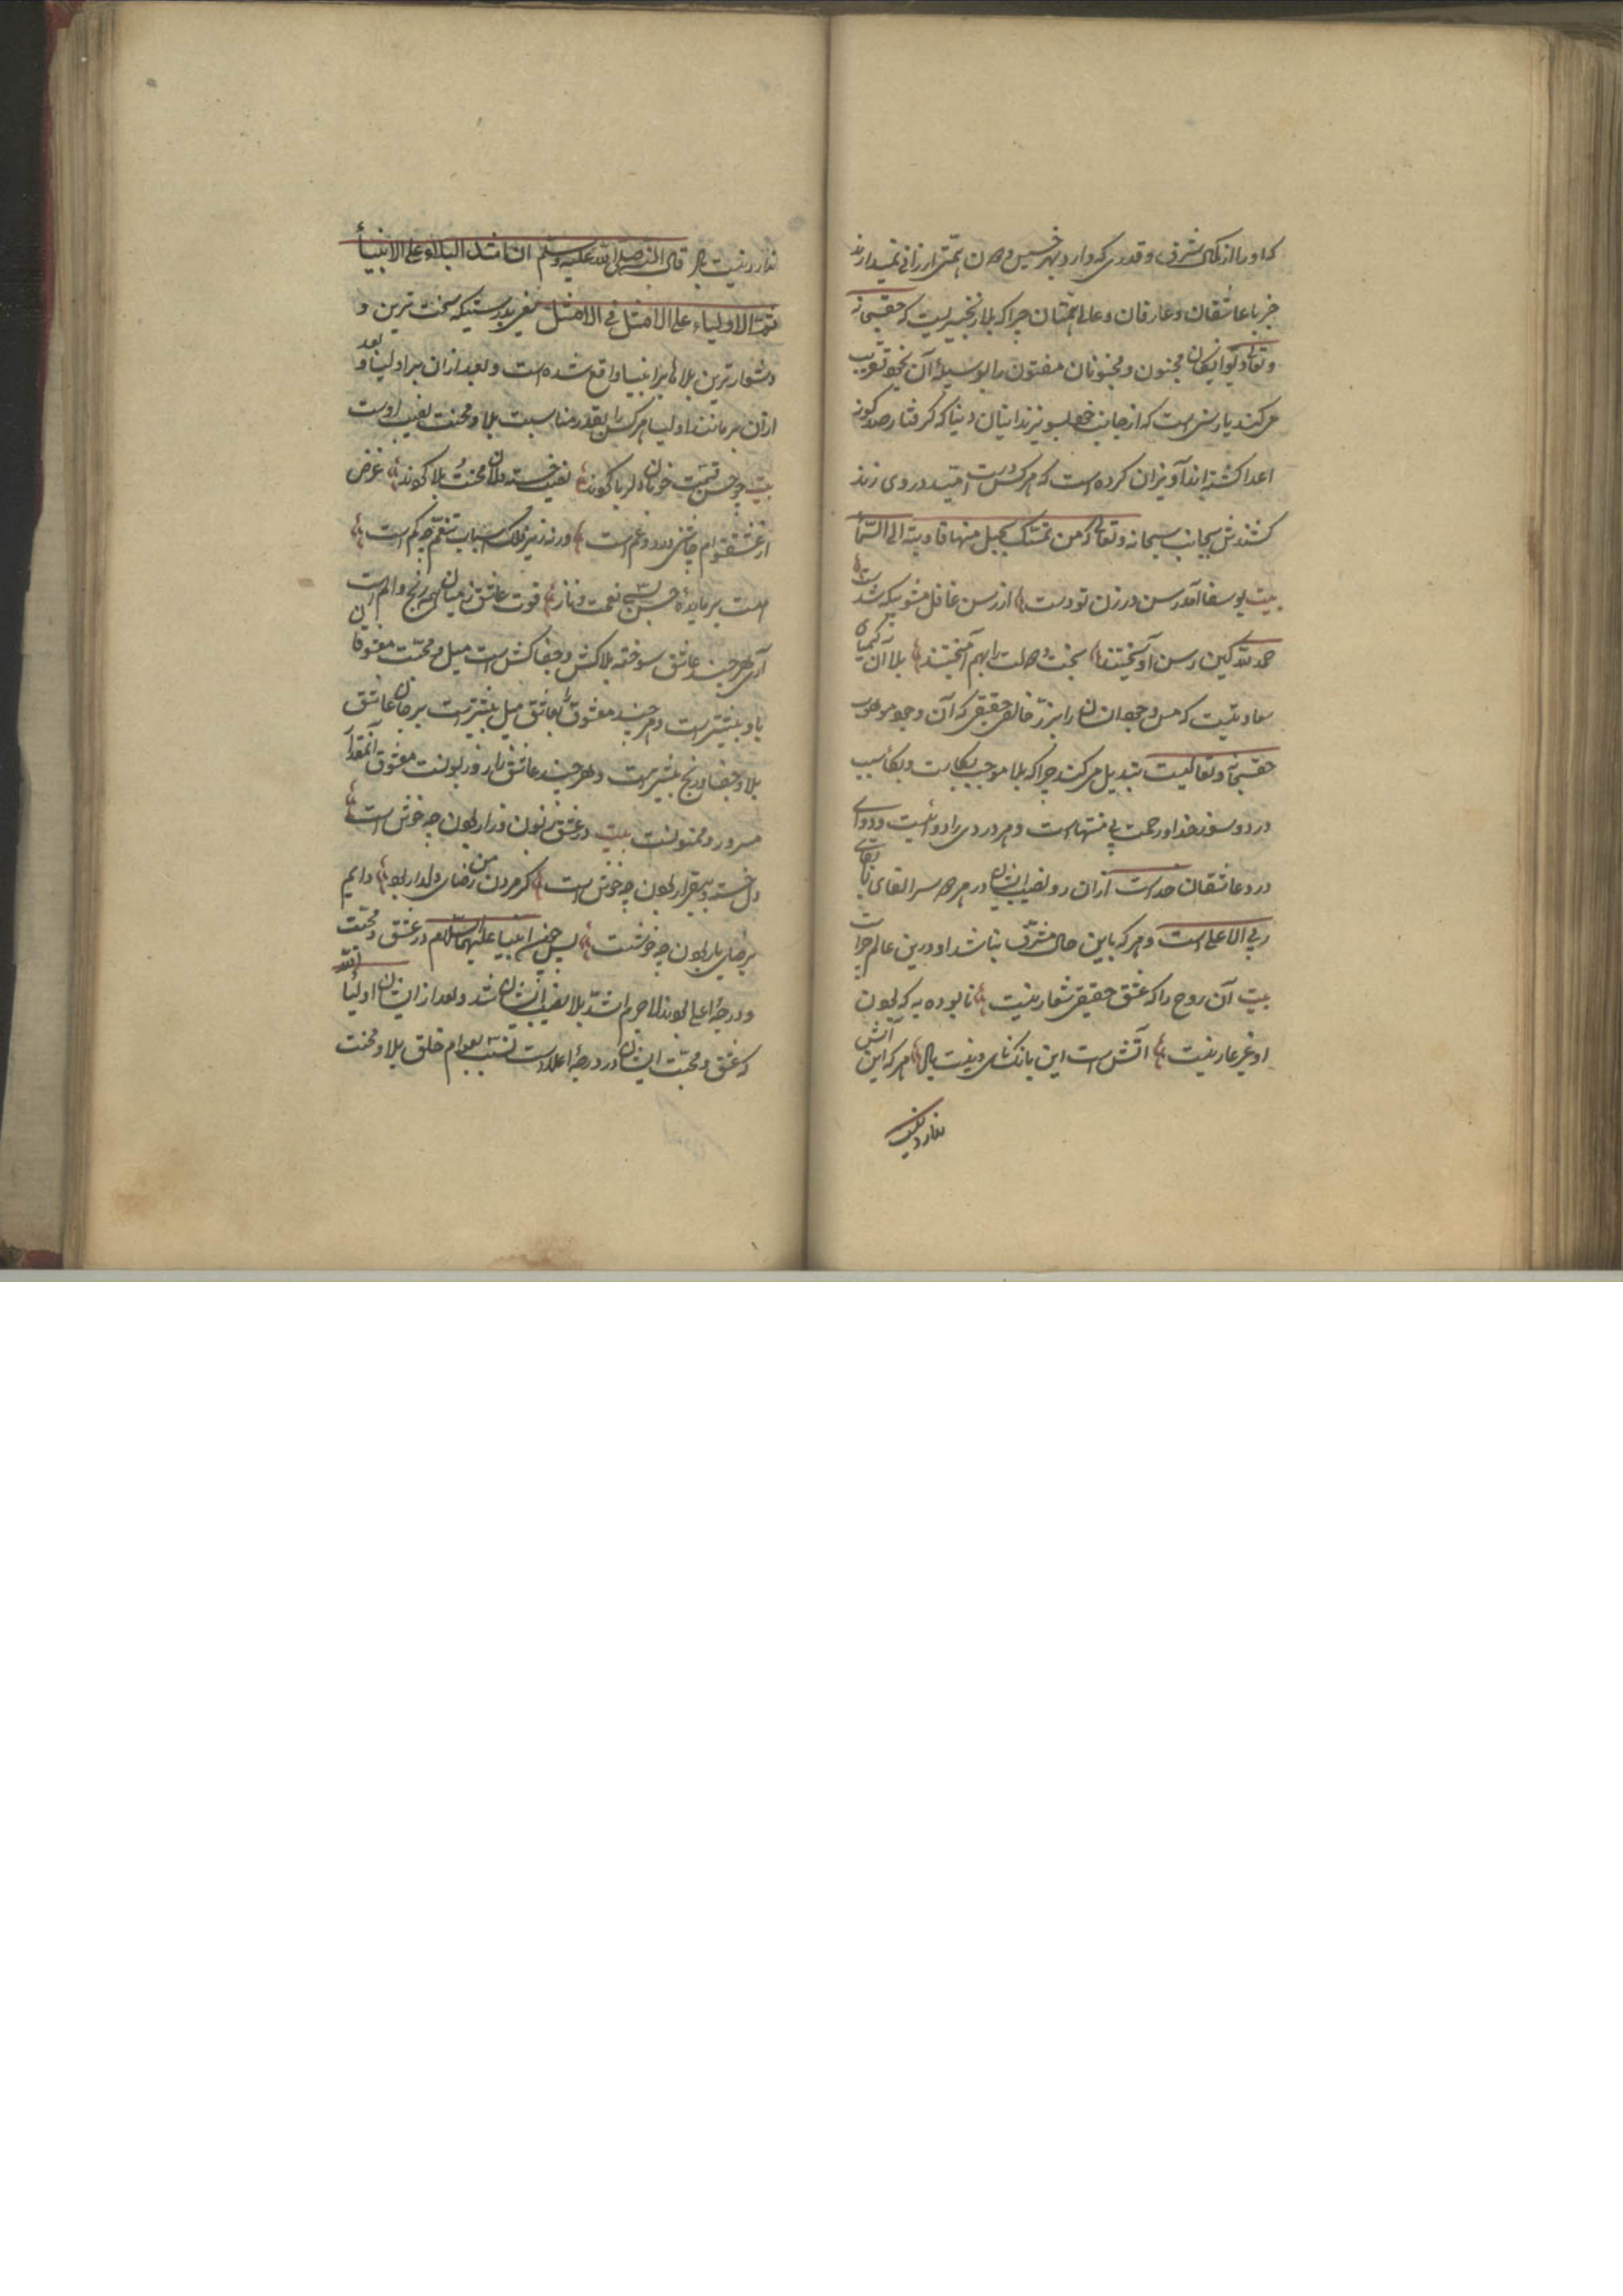 که او را از بلای شرف و قدری که دارد بهر خسیس و دون همتی ارزانی نمیدارند
جز با عاشقان و عارفان و عالی همتان چرا که بلا زنجیریست که حقسبحانه
و تعالی دیوانگان مجنون و مجنونان مفتون را بوسیلهٔ آن بخود تقریب
می کند یا رسنی است که از جانب خود بسوی زندانیان دنیا که گرفتار صد گونه
اعدا گشته اند آویزان کرده است که هر کس دست امید در وی زند
کشندش بجانب سبحانه و تعالی که من تمسک بحبل منها قادته الی السما
بیت یوسفا آمد رسن در زن تو دست از رسن غافل مشو بیگه شدست
حمد لله کین رسن آویختند بخت و دولت را بهم آمیختند بلا آن کیمیاء
سعادتیست که مس وجود انسان را بزر خالص حقیقی که آن وجود موهوب
حقسبحانه و تعالیست تبدیل می کند چرا که بلا موجب بکاست و بکا سبب
درد و سوز خدا و رحمت بی منتهاست و هر دردی را دوائیست و دوای
درد عاشقان خداست از آن رو نصیب ایشان در هر دو سرا لقای
ربی الاعلی است و هر که باین حال مشرف نباشد او درین عالم چراست
بیت آن روح را که عشق حقیقی شعار نیست نابوده به که بودن
او غیر عار نیست آتش است این بانگ نای و نیست باد هر که این آتش
ندارد نیست
ندارد نیست باد قال النبی صلی الله علیه و سلم ان اشد البلاء علی الانبیأ
ثم الاولیاء علی الامثل فی الامثل یعنی بدرستیکه سخت ترین و
دشوارترین بلاها بر انبیا واقع شده است و بعد از آن بر اولیا و بعد
از آن هر مانند اولیا هر کس را بقدر مناسبت بلا و محنت نصیب اوست
بیت چو حسن قسمت خوبان دلربا کردند نصیب خسته دلان محنت و بلا کردند غرض
از عشق توام چاشنی درد و غم است ور نه زیر فلک اسباب تنعم چه کم است
هست بر مایدهٔ حسن بسی نعمت و ناز قوت عاشق ز میان همین رنج و الم است
آری هر چند عاشق سوخته بلاکش و جفاکش است میل و محبت معشوقان
باو بیشتر است و هر چند معشوق را بعاشق میل بیشتر است بر جان عاشق
بلا و جفا و رنج بیشتر است و هر چند عاشق زار و زبونست معشوق آنمقدار
مسرور و ممنونست بیت در عشق زبون و زار بودن چه خوش است
دل خسته و بیقرار بودن چه خوش است گر مردن من رضای دلدار بود دایم
برضای یار بودن چه خوشست پس چون انبیا علیهم السلام در عشق و محبت الله
و درجهٔ اعلی بودند لا جرم اشد بلا نصیب ایشان شد و بعد از ایشان اولیأ
که عشق و محبت ایشان در درجهٔ اعلاست نسبت بعوام خلق بلا و محنت